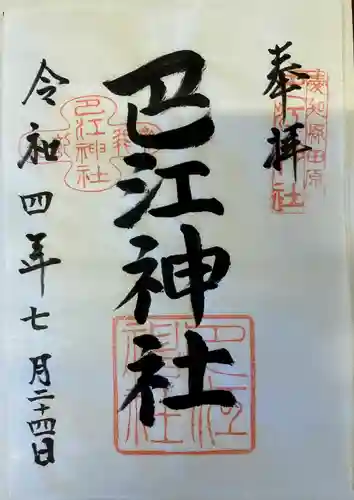 奉拝
愛知県田原
巴江神社
巴江神社
巴江神社
令和四年七月二十四日